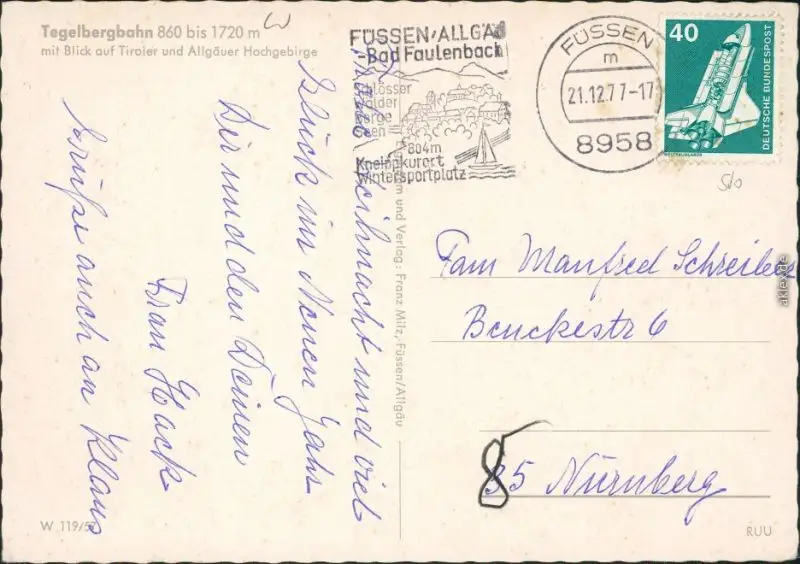 Tegelbergbahn 860 bis 1720 m
mit Blick auf Tiroler und Allgäuer Hochgebirge
FÜSSEN/ALLGÄU
-Bad Faulenbach
Schlösser
Wälder
Berge
Seen
804m
Kneippkurort
Wintersportplatz
FÜSSEN
m
21.12.77-17
8958
40
DEUTSCHE BUNDESPOST
WELTRAUMLABOR
Frohe Weihnacht und viel
Glück im Neuen Jahr
Dir und den Deinen
Frau Hack
Grüße auch an Klaus
und Verlag: Franz Milz, Füssen/Allgäu
Fam Manfred Schreiber
Beuckestr 6
85 Nürnberg
W 119/57
RUU
akpool.de